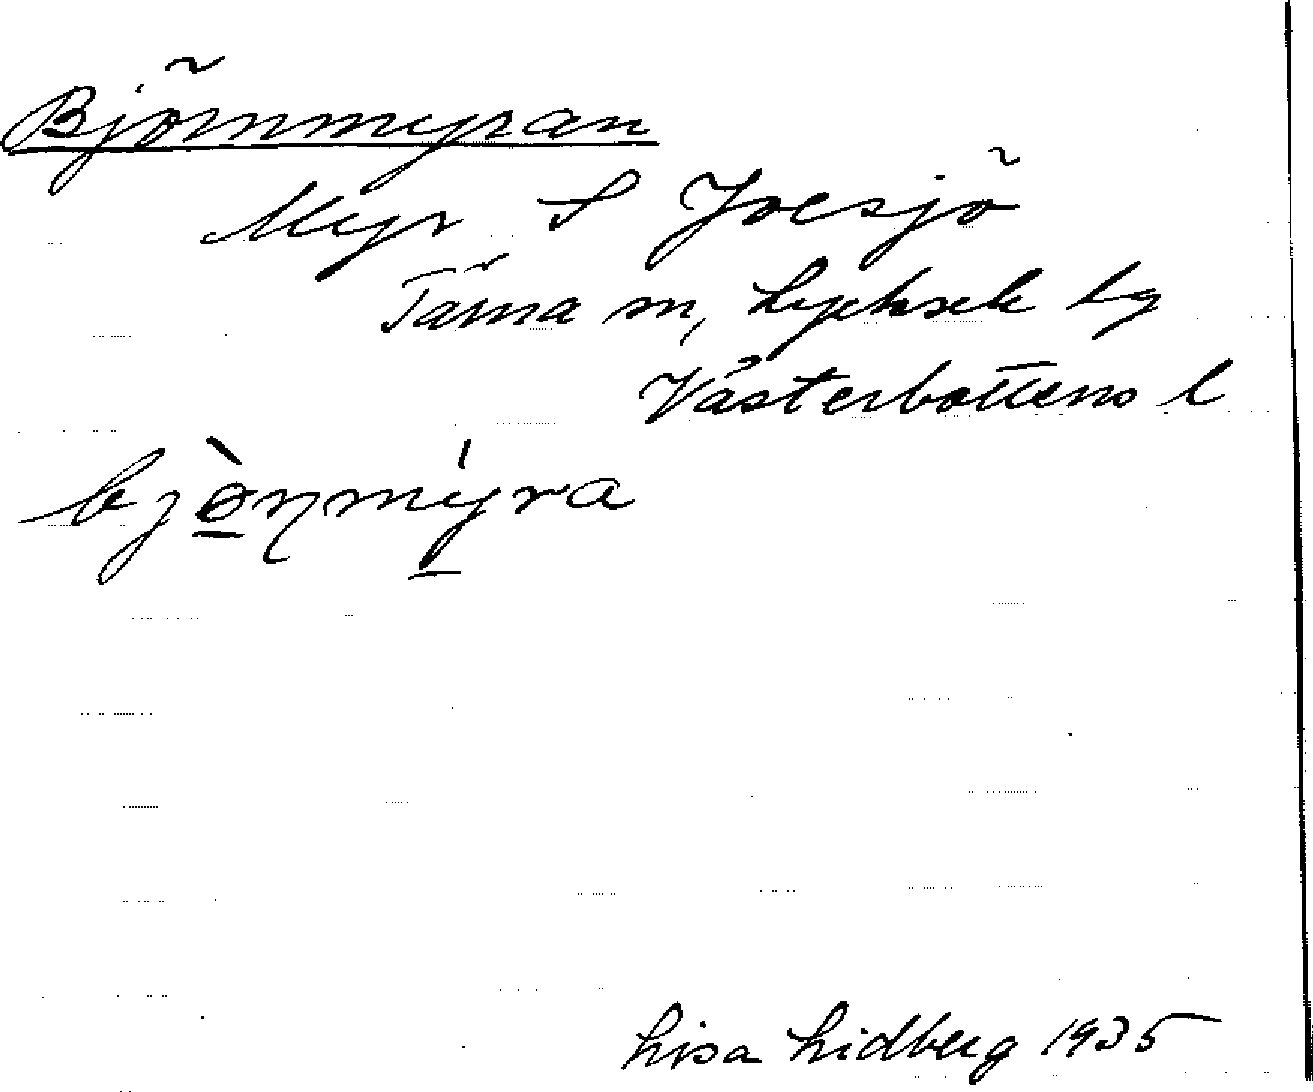 Björnmyran
Myr S Joesjö
Tärna sn, Lycksele lg
Västerbottens l
bjò̱ŋmý̱ra
Lisa Lidberg 1935